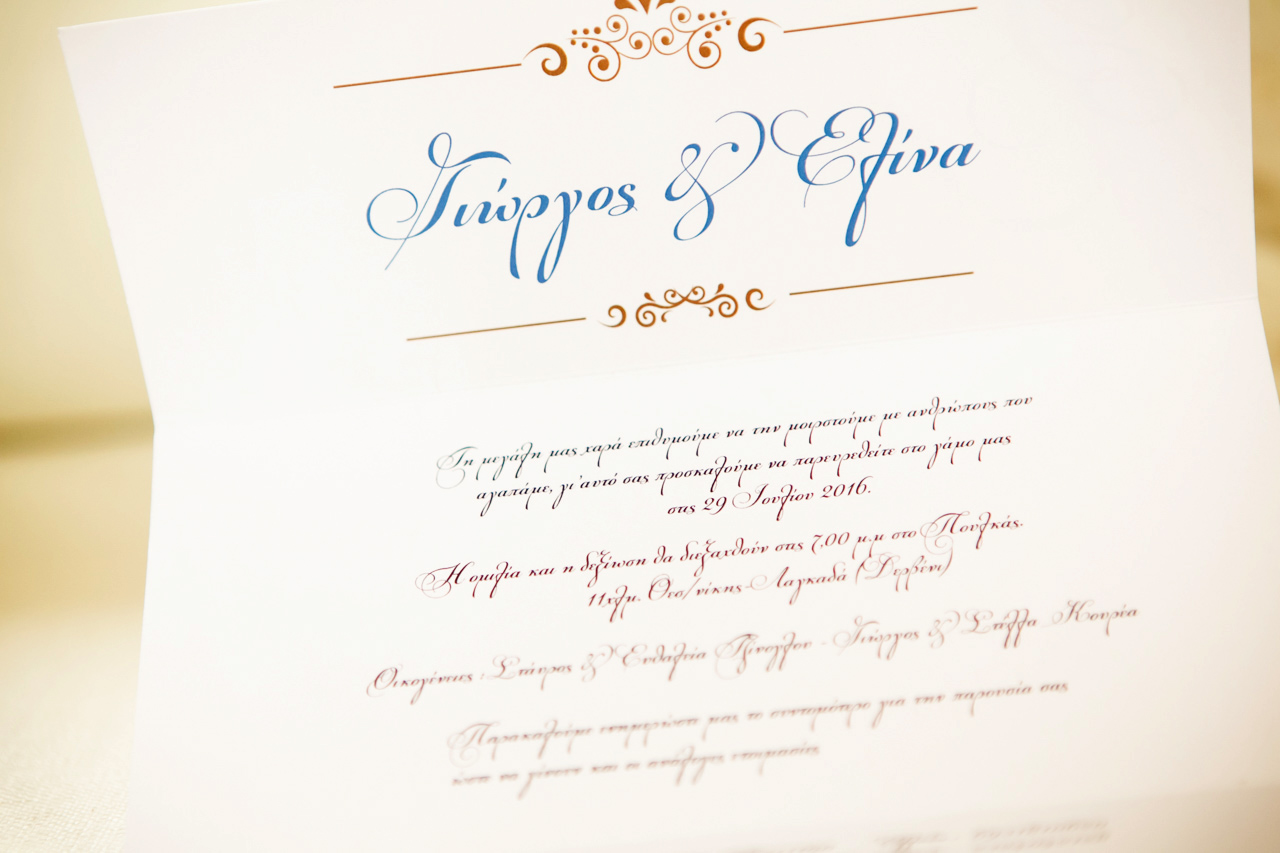 Γιώργος & Ελίνα
Τη μεγάλη μας χαρά επιθυμούμε να την μοιρστούμε με ανθρώπους που
αγαπάμε, γι'αυτό σας προσκαλούμε να παρευρεθείτε στο γάμο μας
στις 29 Ιουλίου 2016.
Η ομιλία και η δεξίωση θα διεξαχθούν στις 7,00 μ.μ στο Πουλκάς.
11χλμ. Θεσ/νίκης-Λαγκαδά (Δερβένι)
Οικογένειες : Σταύρος & Ευθαλεία - Γιώργος & Στέλλα Κουρέα
Παρακαλούμε ενημερώστε μας το συντομότερο για την παρουσία σας
ώστε να γίνουν και οι ανάλογες ετοιμασίες